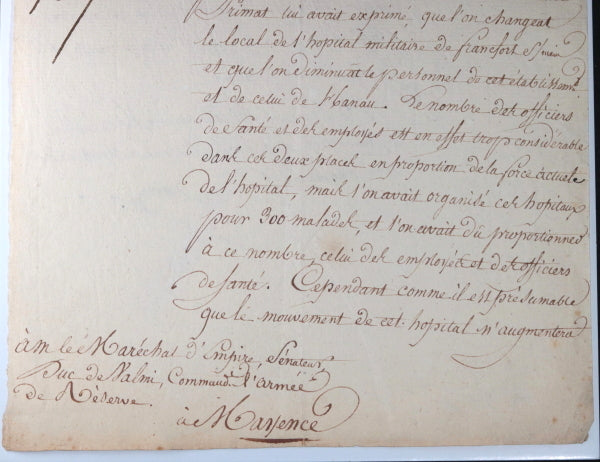 Primat lui avait exprimé, que l'on changeat
le local de l'hopital militaire de francfort s/mein
et que l'on diminuat le personnel de cet établissemt
et de celui de Hanau. Le nombre des officiers
de Santé et des employés est en effet trop considérable
dans ces deux places en proportion de la force actuele
de l'hopital, mais l'on avait organisé ces hopitaux
pour 300 malades, et l'on avait dû proportionner
à ce nombre, celui des employés et des officiers
de santé. Cependant comme il est présumable
que le mouvement de cet hopital n'augmentera
à M le Maréchal d'Empire, Sénateur,
Duc de Valmi, Commandt l'armée
de Réserve.
à Mayence